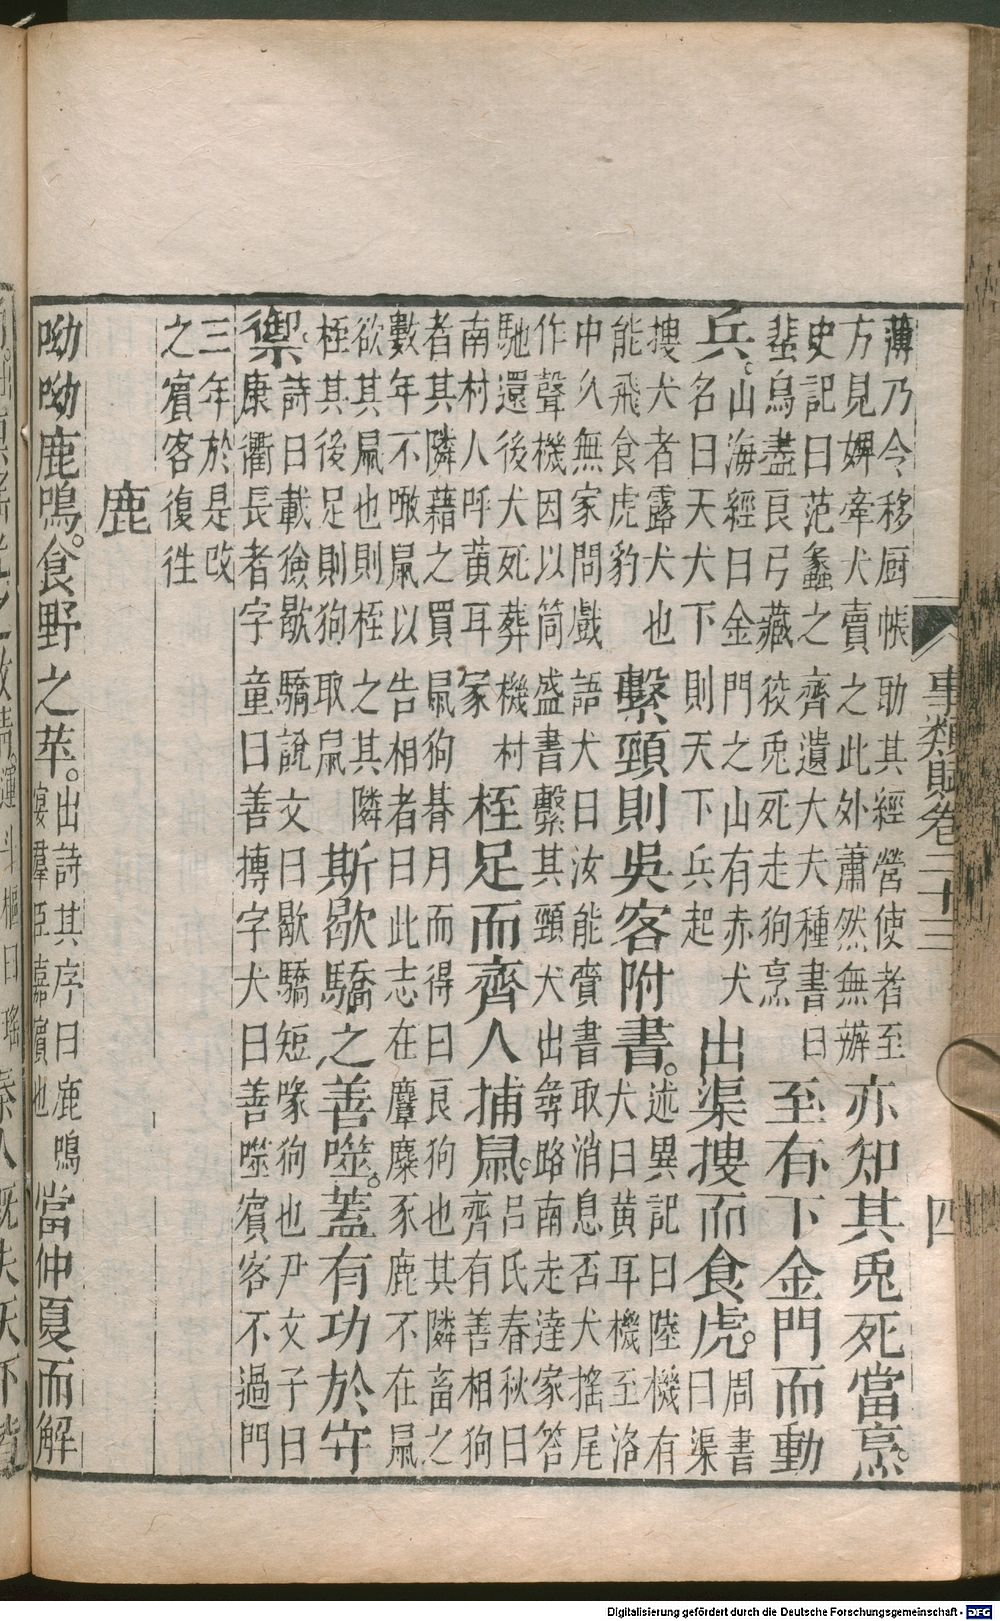 事類賦卷二十三 四
薄乃令移厨帳助其經營使者至
方見婢牽犬賣之此外蕭然無辦
亦知其兎死當烹。
史記曰范蠡之齊遺大夫種書曰
蜚鳥盡良弓藏狡兎死走狗烹
至有下金門而動
兵。
山海經曰金門之山有赤犬
名曰天犬下則天下兵起
出渠搜而食虎。
周書
曰渠
搜犬者露犬也
能飛食虎豹
繫頸則吳客附書。
述異記曰陸機有
犬曰黄耳機至洛
中久無家問戲語犬曰汝能賫書取消息否犬搖尾
作聲機因以筒盛書繫其頸犬出尋路南走達家答
馳還後犬死葬機村
南村人呼黄耳冢
桎足而齊人捕鼠。
呂氏春秋曰
齊有善相狗
者其隣藉之買鼠狗朞月而得曰良狗也其隣畜之
數年不噉鼠以告相者曰此志在麞麋豕鹿不在鼠
欲其鼠也則桎之其隣
桎其後足則狗取鼠
斯歇驕之善噬。蓋有功於守
禦。
詩曰載獫歇驕說文曰歇驕短喙狗也尹文子曰
康衢長者字童曰善摶字犬曰善噬賓客不過門
三年於是改
之賓客復徃
鹿
呦呦鹿鳴。食野之苹。
出詩其序曰鹿鳴
宴羣臣嘉賓也
當仲夏而解
Digitalisierung gefördert durch die Deutsche Forschungsgemeinschaft - DFG